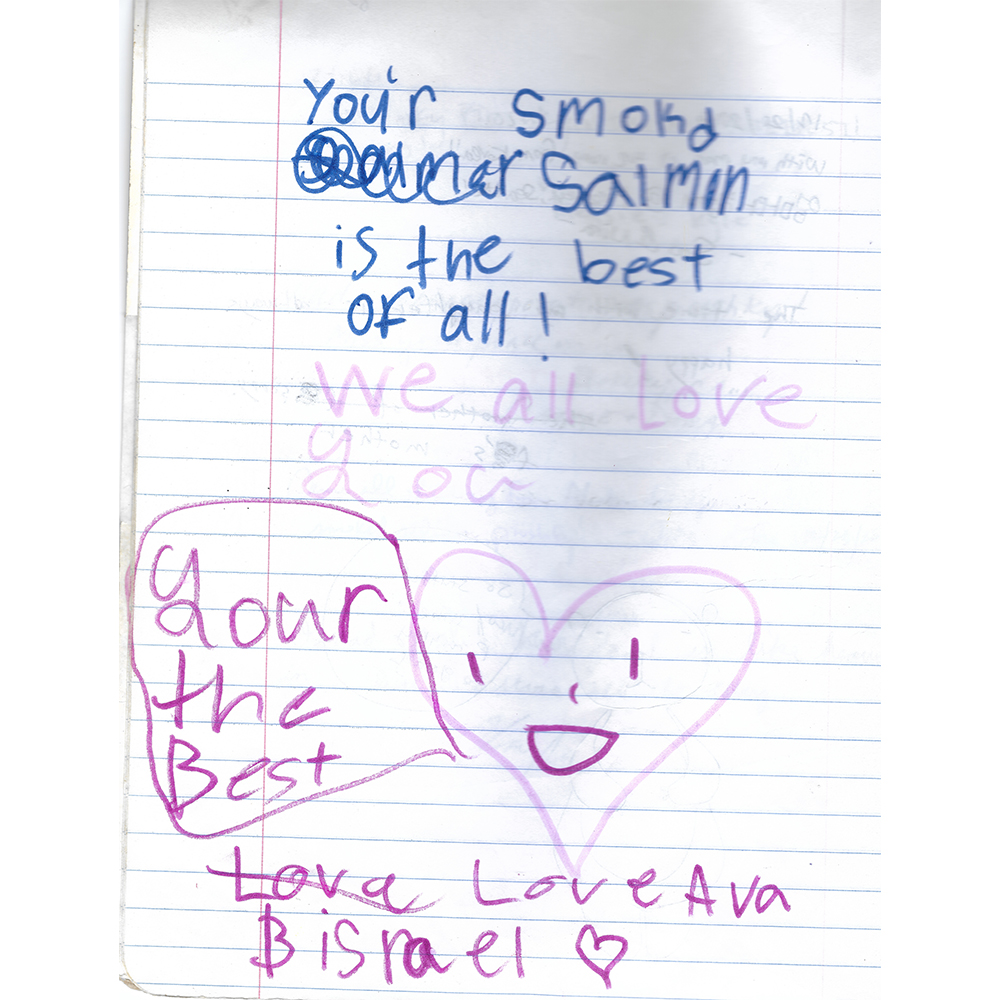 Your Smokd
Salmin
is the best
of all!
We all Love
you
your
the
Best
Lova Love Ava
Bisrael